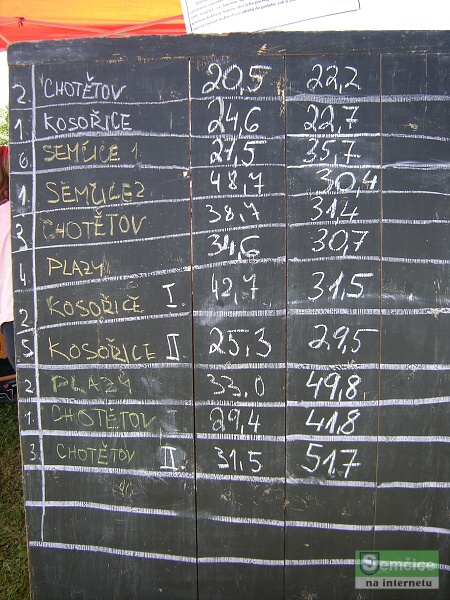 2. CHOTĚTOV 20,5 22,2
1. KOSOŘICE 24,6 22,7
6 SEMČICE 1 27,5 35,7
1. SEMČICE 2. 48,7 30,4
3. CHOTĚTOV 38,7 31,4
4 PLAZY 34,6 30,7
2 KOSOŘICE I. 42,7 31,5
5 KOSOŘICE II. 25,3 29,5
2 PLAZY 33,0 49,8
1. CHOTĚTOV I 29,4 41,8
3. CHOTĚTOV II. 31,5 51,7
Semčice
na internetu